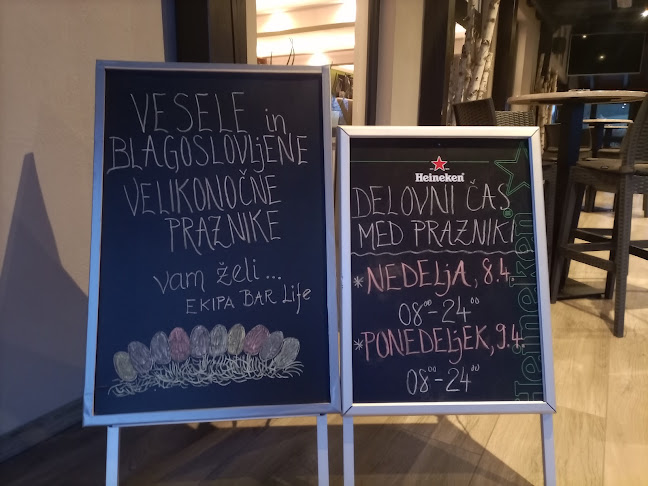 VESELE in
BLAGOSLOVLjENE
VELIKONOČNE
PRAZNIKE
vam želi...
EKIPA BAR Life
Heineken
DELOVNI ČAS
MED PRAZNIKI
*NEDELjA, 8.4.
08⁰⁰-24⁰⁰
*PONEDELjEK, 9.4.
08⁰⁰-24⁰⁰
Heineken